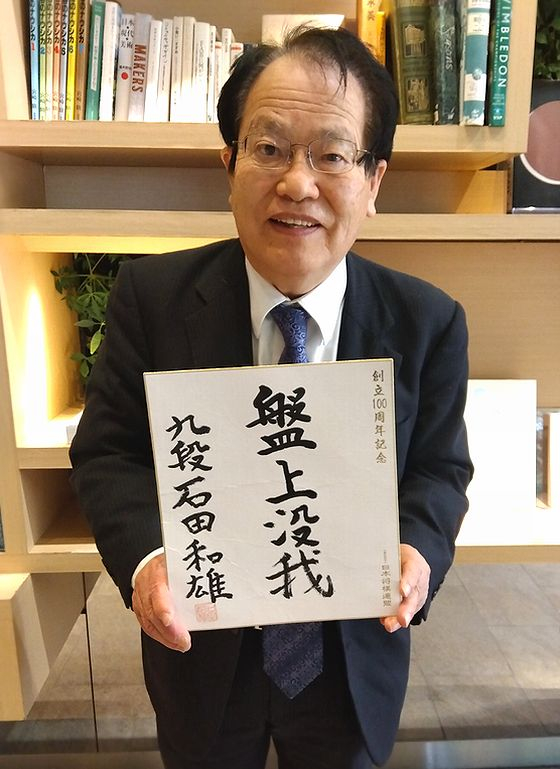 創立100周年記念
盤上没我
九段 石田和雄
日本将棋連盟
現代・美術
MAKERS
WIMBLEDON